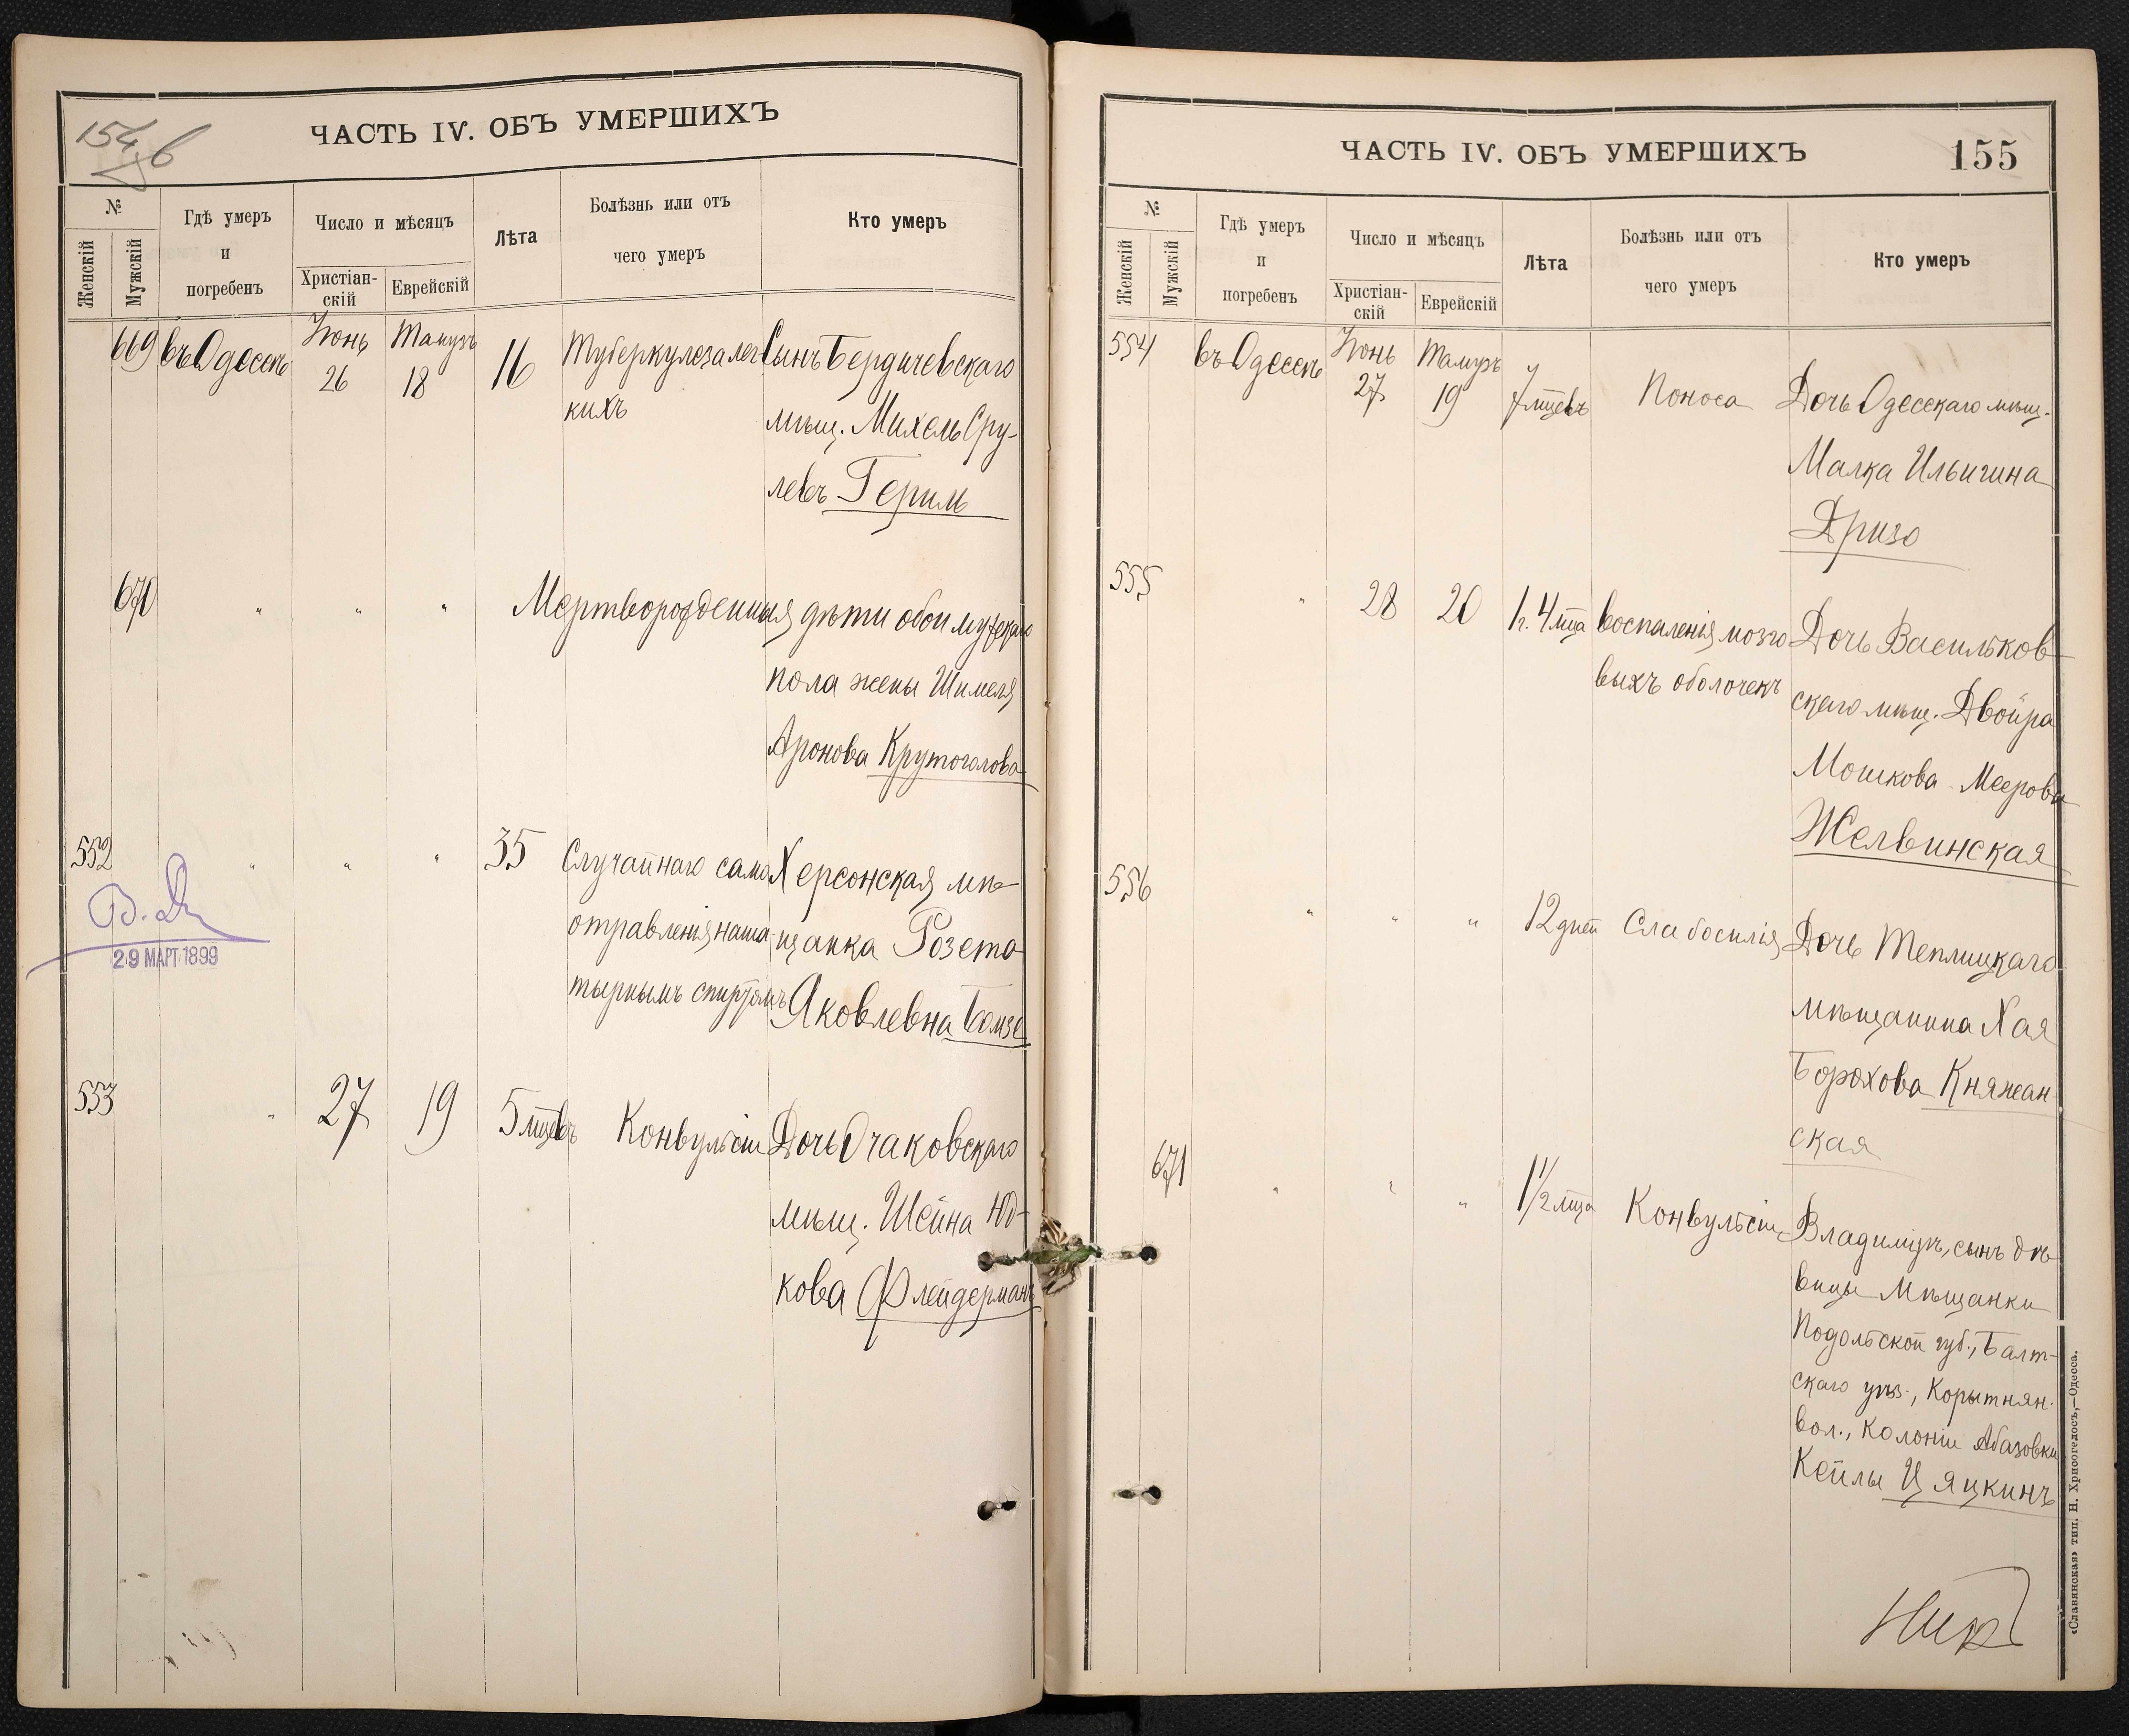 154 в
ЧАСТЬ IV. ОБЪ УМЕРШИХЪ
№
Женскій
Мужскій
Гдѣ умеръ
и
погребенъ
Число и мѣсяцъ
Христіан-
скій
Еврейскій
Лѣта
Болѣзнь или отъ
чего умеръ
Кто умеръ
669 въ Одессѣ Іюнь 26 Тамузъ 18 16 Туберкулеза лег- Сынъ Бердичевскаго
кихъ мѣщ. Михель Сру-
левъ Гериль
670 " " " Мертворожденныя дѣти обои мужскаго
пола жены Шимеля
Аронова Крутоголова
552 " " " 35 Случайнаго само Херсонская мѣ-
отравленія наша- щанка Розета
тырнымъ спиртомъ Яковлевна Бомзе
В.
29 МАРТ 1899
553 " 27 19 5 мцевъ Конвульсіи Дочь Очаковскаго
мѣщ. Шейна Юд-
кова Флейдерманъ
ЧАСТЬ IV. ОБЪ УМЕРШИХЪ
155
№
Женскій
Мужскій
Гдѣ умеръ
и
погребенъ
Число и мѣсяцъ
Христіан-
скій
Еврейскій
Лѣта
Болѣзнь или отъ
чего умеръ
Кто умеръ
554 въ Одессѣ Іюнь 27 Тамузъ 19 7 мцевъ Поноса Дочь Одесскаго мѣщ.
Малка Ильигина
Дризо
555 " 28 20 1 г. 4 мца воспаленія мозго Дочь Васильков-
выхъ оболочекъ скаго мѣщ. Двойра
Мошкова-Меерова
Желвинская
556 " " " 12 дней Слабосилія Дочь Теплицкаго
мѣщанина Хая
Борохова Княжан
ская
671 " " " 1 1/2 мца Конвульсіи Владиміръ, сынъ дѣ-
вицы Мѣщанки
Подольской губ., Балт-
скаго уѣз., Корытнян.
вол., Колоніи Абазовки
Кейлы Цяцкинъ
«Славянская» тип. Н. Хрисогелосъ,—Одесса.